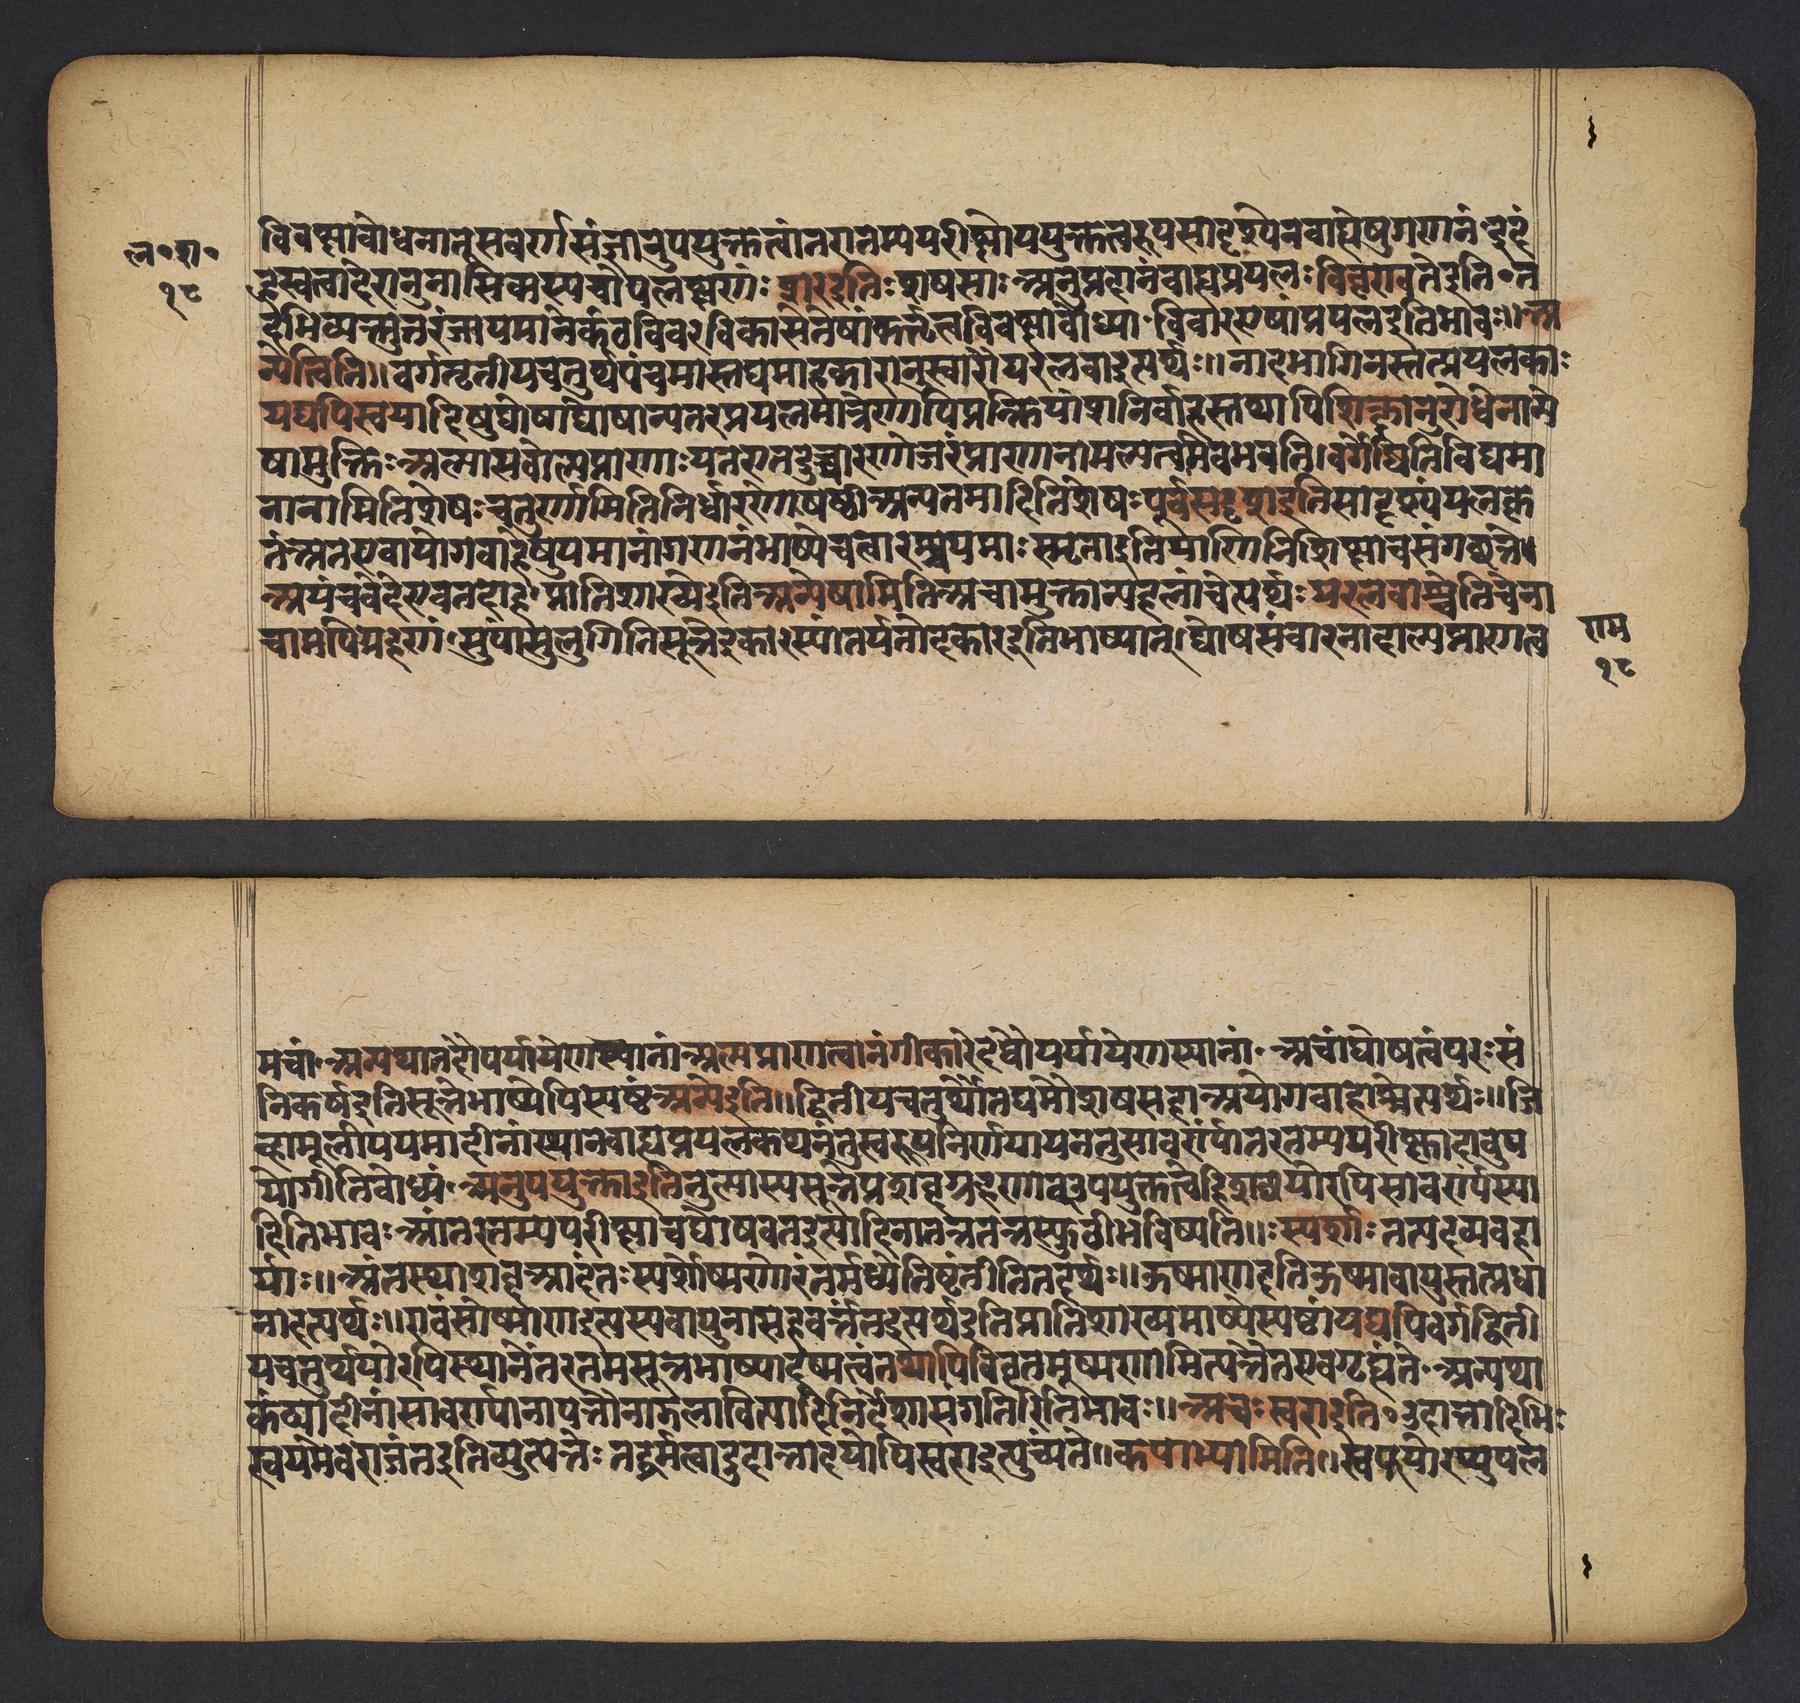 ल॰श॰
१८
विवक्षाबोधनात् सवर्णसंज्ञानुपयुक्तत्वांतरतम्यपरीक्षोपयुक्तत्वरूपसादृश्येनबाह्येषुगणनं इदं
ह्रस्वत्वादेरानुनासिक्यस्यचोपलक्षणं शरइति शषसाः अनुप्रदानंबाह्यप्रयत्नः विवृण्वतेइति॰त
द्दमिव्यक्त्युत्तरंजायमानेकंठविवरविकासेतेषांकर्तृत्वविवक्षाबोध्या विवारएषांप्रयत्नइतिभावः॥ अ
न्येत्विति॥ वर्गतृतीयचतुर्थपंचमास्तद्यमाहकारानुस्वारौयरलवाइत्यर्थः॥ नादभागिनस्तत्प्रयत्नकाः
यद्यपिस्वयादिषुघोषाघोषान्यतरप्रयत्नमात्रेणापिप्रक्रियांशनिर्वाहस्तथापिशिक्षानुरोधेनाम
षामुक्तिः अल्पासवोल्पप्राणाः यतएतदुच्चारणेजरंप्राणानामल्पत्वमेवभवति वर्गेष्वितिविद्यमा
नानामितिशेषः चतुर्णामितिनिर्धारणषष्ठी अन्यतमादितिशेषः पूर्वसदृशइतिसादृश्यंयत्नकृ
तं अतएवायोगवाहेषुयमानांगणनंभाष्ये चत्वारश्चयमाः स्मृताइतिपाणिनिशिक्षाचसंगच्छते॥
अयंचवेदेएवनतदोः प्रातिशाख्येइति अन्येषामिति अचामुक्तान्यहलांचेत्यर्थः यरलवाश्चेतिचेना
चामपिग्रहणं सुपांसुलुगितिसूत्रेइकारस्यांतर्यतोदकारइतिभाष्यात् घोषसंवारनादाल्पप्राणत्व
राम
१८
मचां अन्यथातदोपर्यायेणस्याता अल्पप्राणत्वानंगीकारेदधौपर्यायेणस्यातां अचांघोषत्वंपरः सं
निकर्षइतिसूत्रेभाष्येपिस्पष्टं अन्यइति॥ द्वितीयचतुर्थौतद्यमौशषसहाअयोगवाहोश्चेत्यर्थः॥ जि
व्हामूलीयमादीनांस्थानबाह्यप्रयत्नकथनंतुस्वरूपनिर्णयायनतुसावर्ण्यांतरतम्यपरीक्षादावुप
योगीतिबोध्यं अनुपयुक्ताइतितुल्यास्यसूत्रेप्रशब्दग्रहणादुपयुक्तत्वेहिशब्दयोरपिसावर्ण्यंस्या
दितिभावः आंतरतम्यपरीक्षाचघोषवतइत्यादिनातत्रतत्रस्फुटीभविष्यति॥ स्पर्शाः तत्पदव्यवहा
र्याः॥ अंतस्थाशब्दआदंतः स्पर्शोष्मणोरंतर्मध्येतिष्ठंतीतितदर्थः॥ ऊष्माणइति ऊष्मावायुस्तत्प्रधा
नाइत्यर्थः॥ एवंसोष्माणइत्यस्यवायुनासहवर्त्तंतइत्यर्थइतिप्रातिशाख्यभाष्येस्पष्टं यद्यपिवर्गद्विती
यचतुर्थयोरपिस्थानेंतरतमसूत्रभाष्यादूष्मत्वंतथापिविवृतमूष्मणामित्यत्रैतएवगृह्यंते अन्यथा
कंठ्यादीनांसावर्ण्यानापत्तौनाज्झलावित्यादिनिर्देशासंगतिरितिभावः॥ अचः स्वराइति उदात्तादिभिः
स्वयमेवराजंतइतिव्युत्पत्तेः तद्धर्मत्वादुदात्तादयोपिस्वराइत्युच्यंते॥ कपाभ्यामिति॥ खफयोरप्युपल